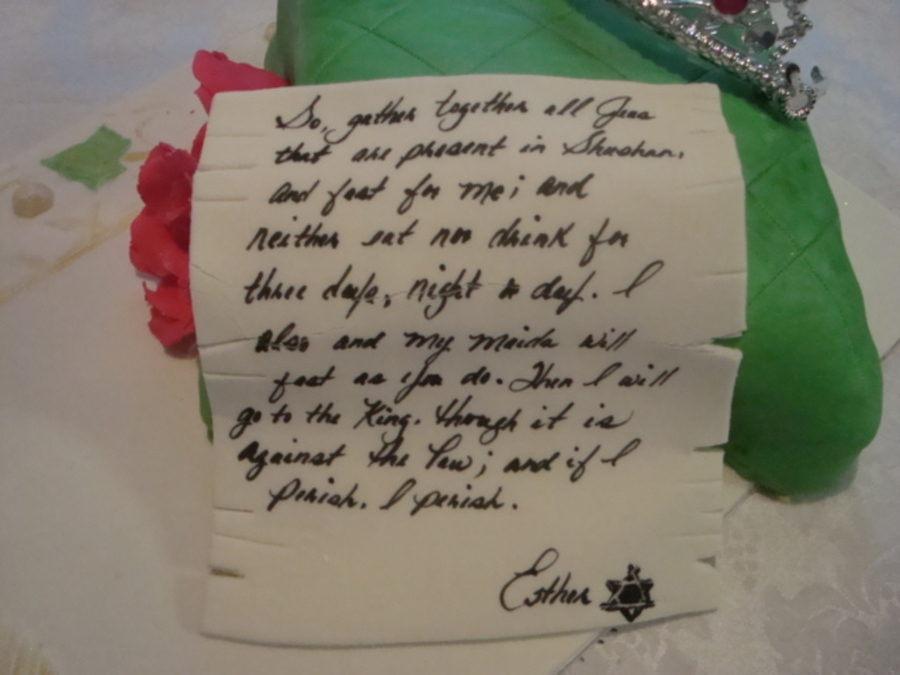 So, gather together all Jews
that are present in Shushan,
and fast for me; and
neither eat nor drink for
three days, night or day. I
also and my maids will
fast as you do. Then I will
go to the King. though it is
against the law; and if I
perish. I perish.
Esther